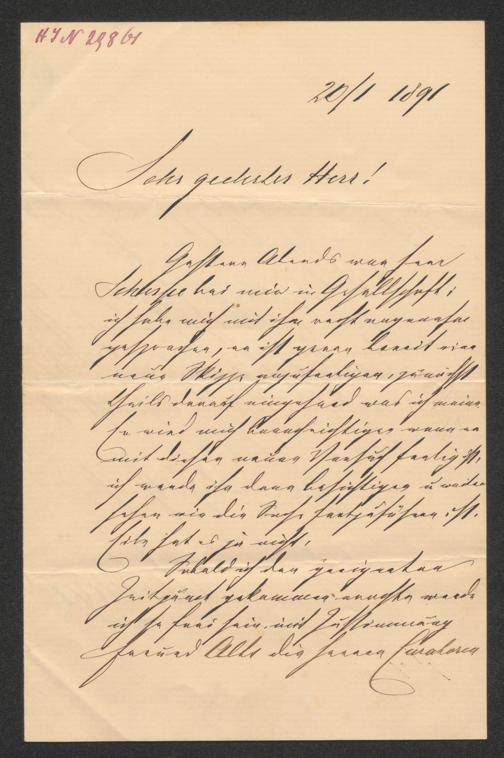 HIN 29861
20/1 1891
Sehr geehrter Herr!
Gestern Abends war Herr
bei mir in Gesellschaft;
ich habe mich mit ihm recht angenehm
gesprochen, er ist gern bereit eine
neue Skizze anzufertigen, zumeist
theils darauf eingehend was ich meine
Er wird mich benachrichtigen wann er
mit diesem neuen Versuch fertig ist,
ich werde ihn dann besichtigen u weiter
sehen wie die Sache fortzuführen ist.
Eile hat es ja nicht.
Sobald ich den geeigneten
Zeitpunct gekommen erachte werde
ich so frei sein, mit Zustimmung
Freund Alts die Herren Curatoren